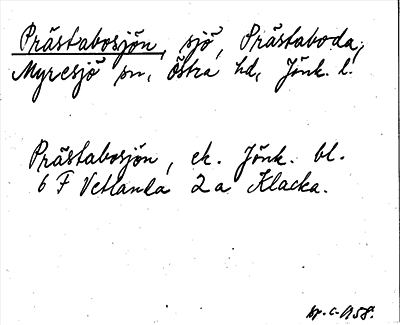 Prästabosjön, sjö, Prästaboda,
Myresjö sn, Östra hd, Jönk. l.
Prästabosjön, ek. Jönk. bl.
6 F Vetlanda 2 a Klacka.